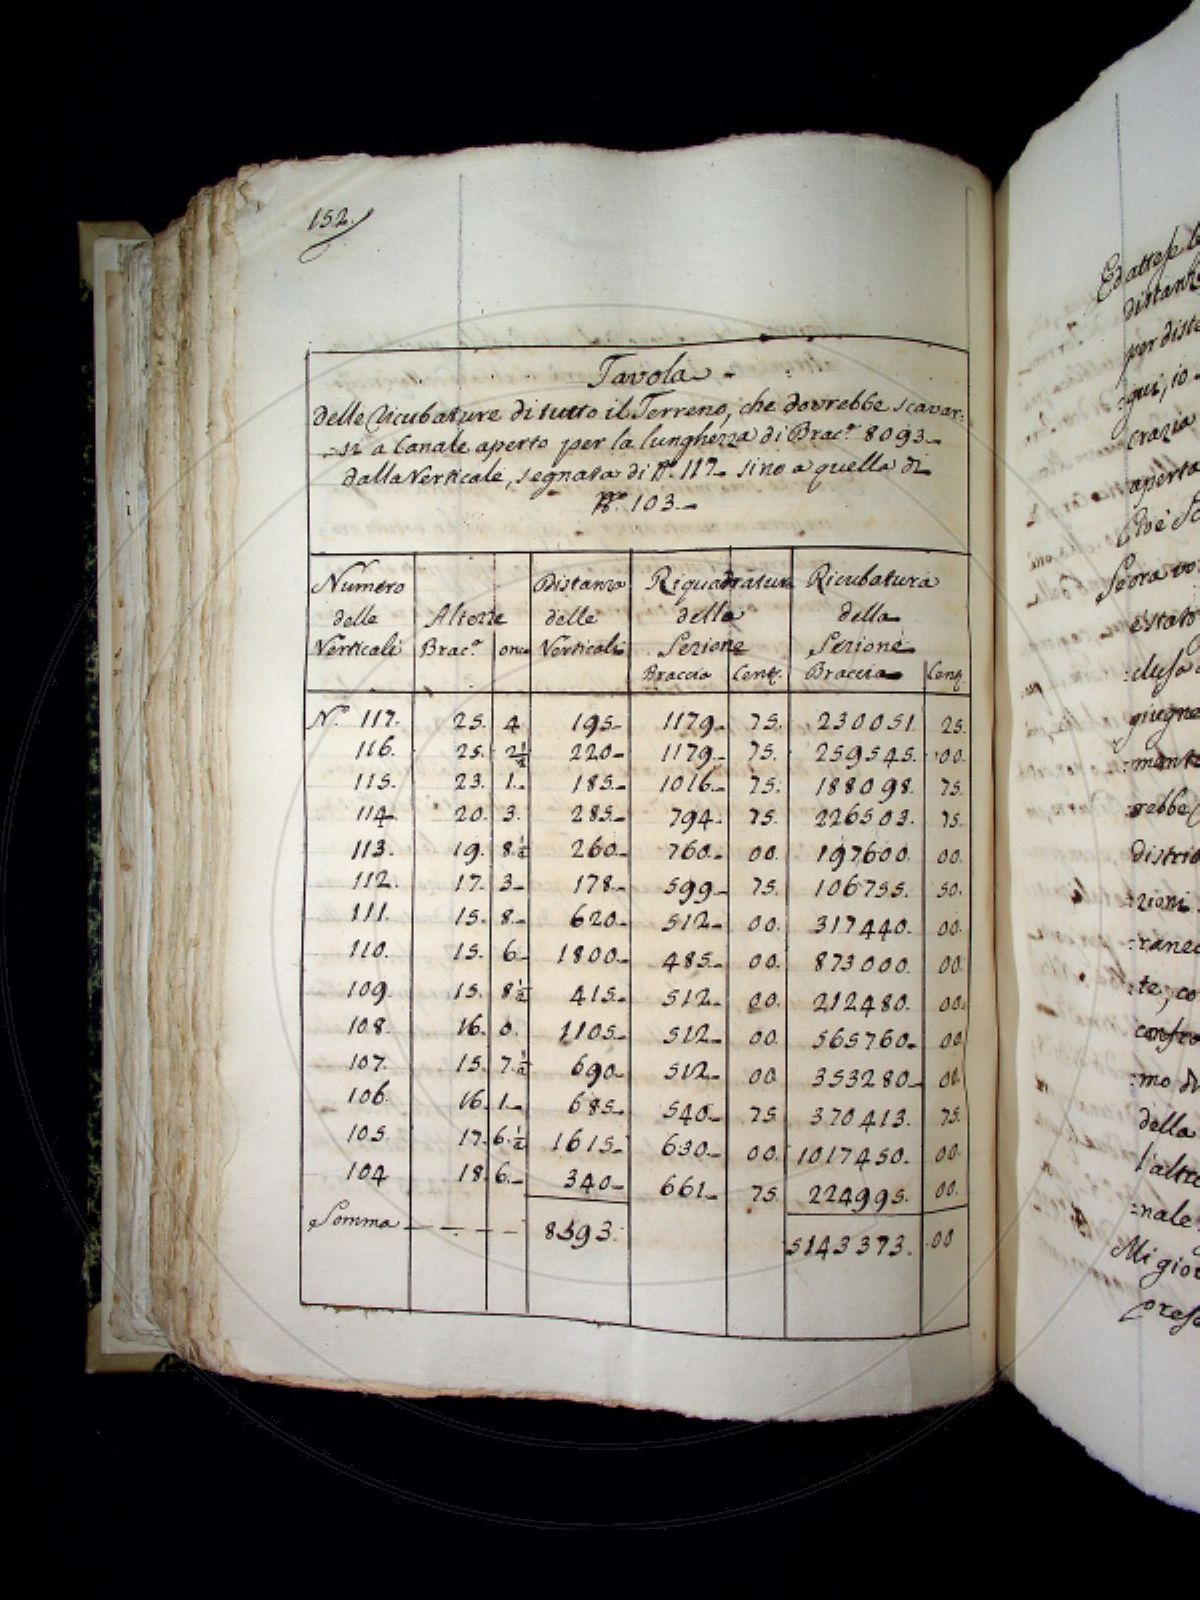 152.
Tavola
delle Ricubature di tutto il Terreno, che dovrebbe scavar:
:si a Canale aperto per la lunghezza di Brac.ª 8093
dalla Verticale, segnata di Nº. 117 sino a quella di
Nº. 103.
Numero delle Verticali | Altezze Brac.ª | once | Distanza delle Verticali | Riquadratura della Sezione Braccia | Cent. | Ricubatura della Sezione Braccia | Cent.
N.º 117. 25. 4 195 1179 75. 230051 25.
116. 25. 2½ 220 1179 75. 259545. 00.
115. 23. 1. 185 1016 75. 188098. 75.
114 20. 3. 285 794 75. 226503. 75.
113. 19. 8½ 260 760 00. 197600. 00.
112. 17. 3 178 599 75. 106755. 50.
111. 15. 8 620 512 00. 317440. 00.
110. 15. 6 1800 485 00. 873000. 00.
109. 15. 8½ 415 512 00. 212480. 00.
108. 16. 0. 1105 512 00. 565760 00
107. 15. 7½ 690 512 00. 353280 00
106. 16. 1 685 540 75. 370413. 75.
105. 17. 6½ 1615 630 00. 1017450. 00.
104 18. 6. 340 661 75. 224995. 00.
Somma 8593. 5143373. 00
Ed attese
distan
per dist
:qui, 10
crazia
aperta
Cioè
estato
:clusa
giugne
:ment
:rebbe
distri
:zioni
:rane
:te, co
:mo di
della
l'altr
:nale
Mi gio
pres